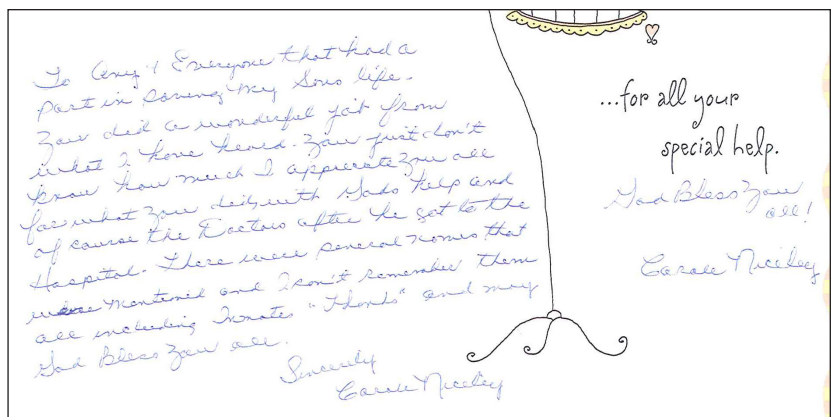 To Any & Everyone that had a
part in saving my Sons life.
You did a wonderful job from
what I have heard. You just don't
know how much I appreciate you all
for what you did, with Gods help and
of course the Doctors after he got to the
Hospital. There were several names that
were mentened and I don't remember them
all including Inmates "Thanks" and may
God Bless You all.
Sincerely
Carole Niceley
...for all your
special help.
God Bless You
all!
Carole Niceley